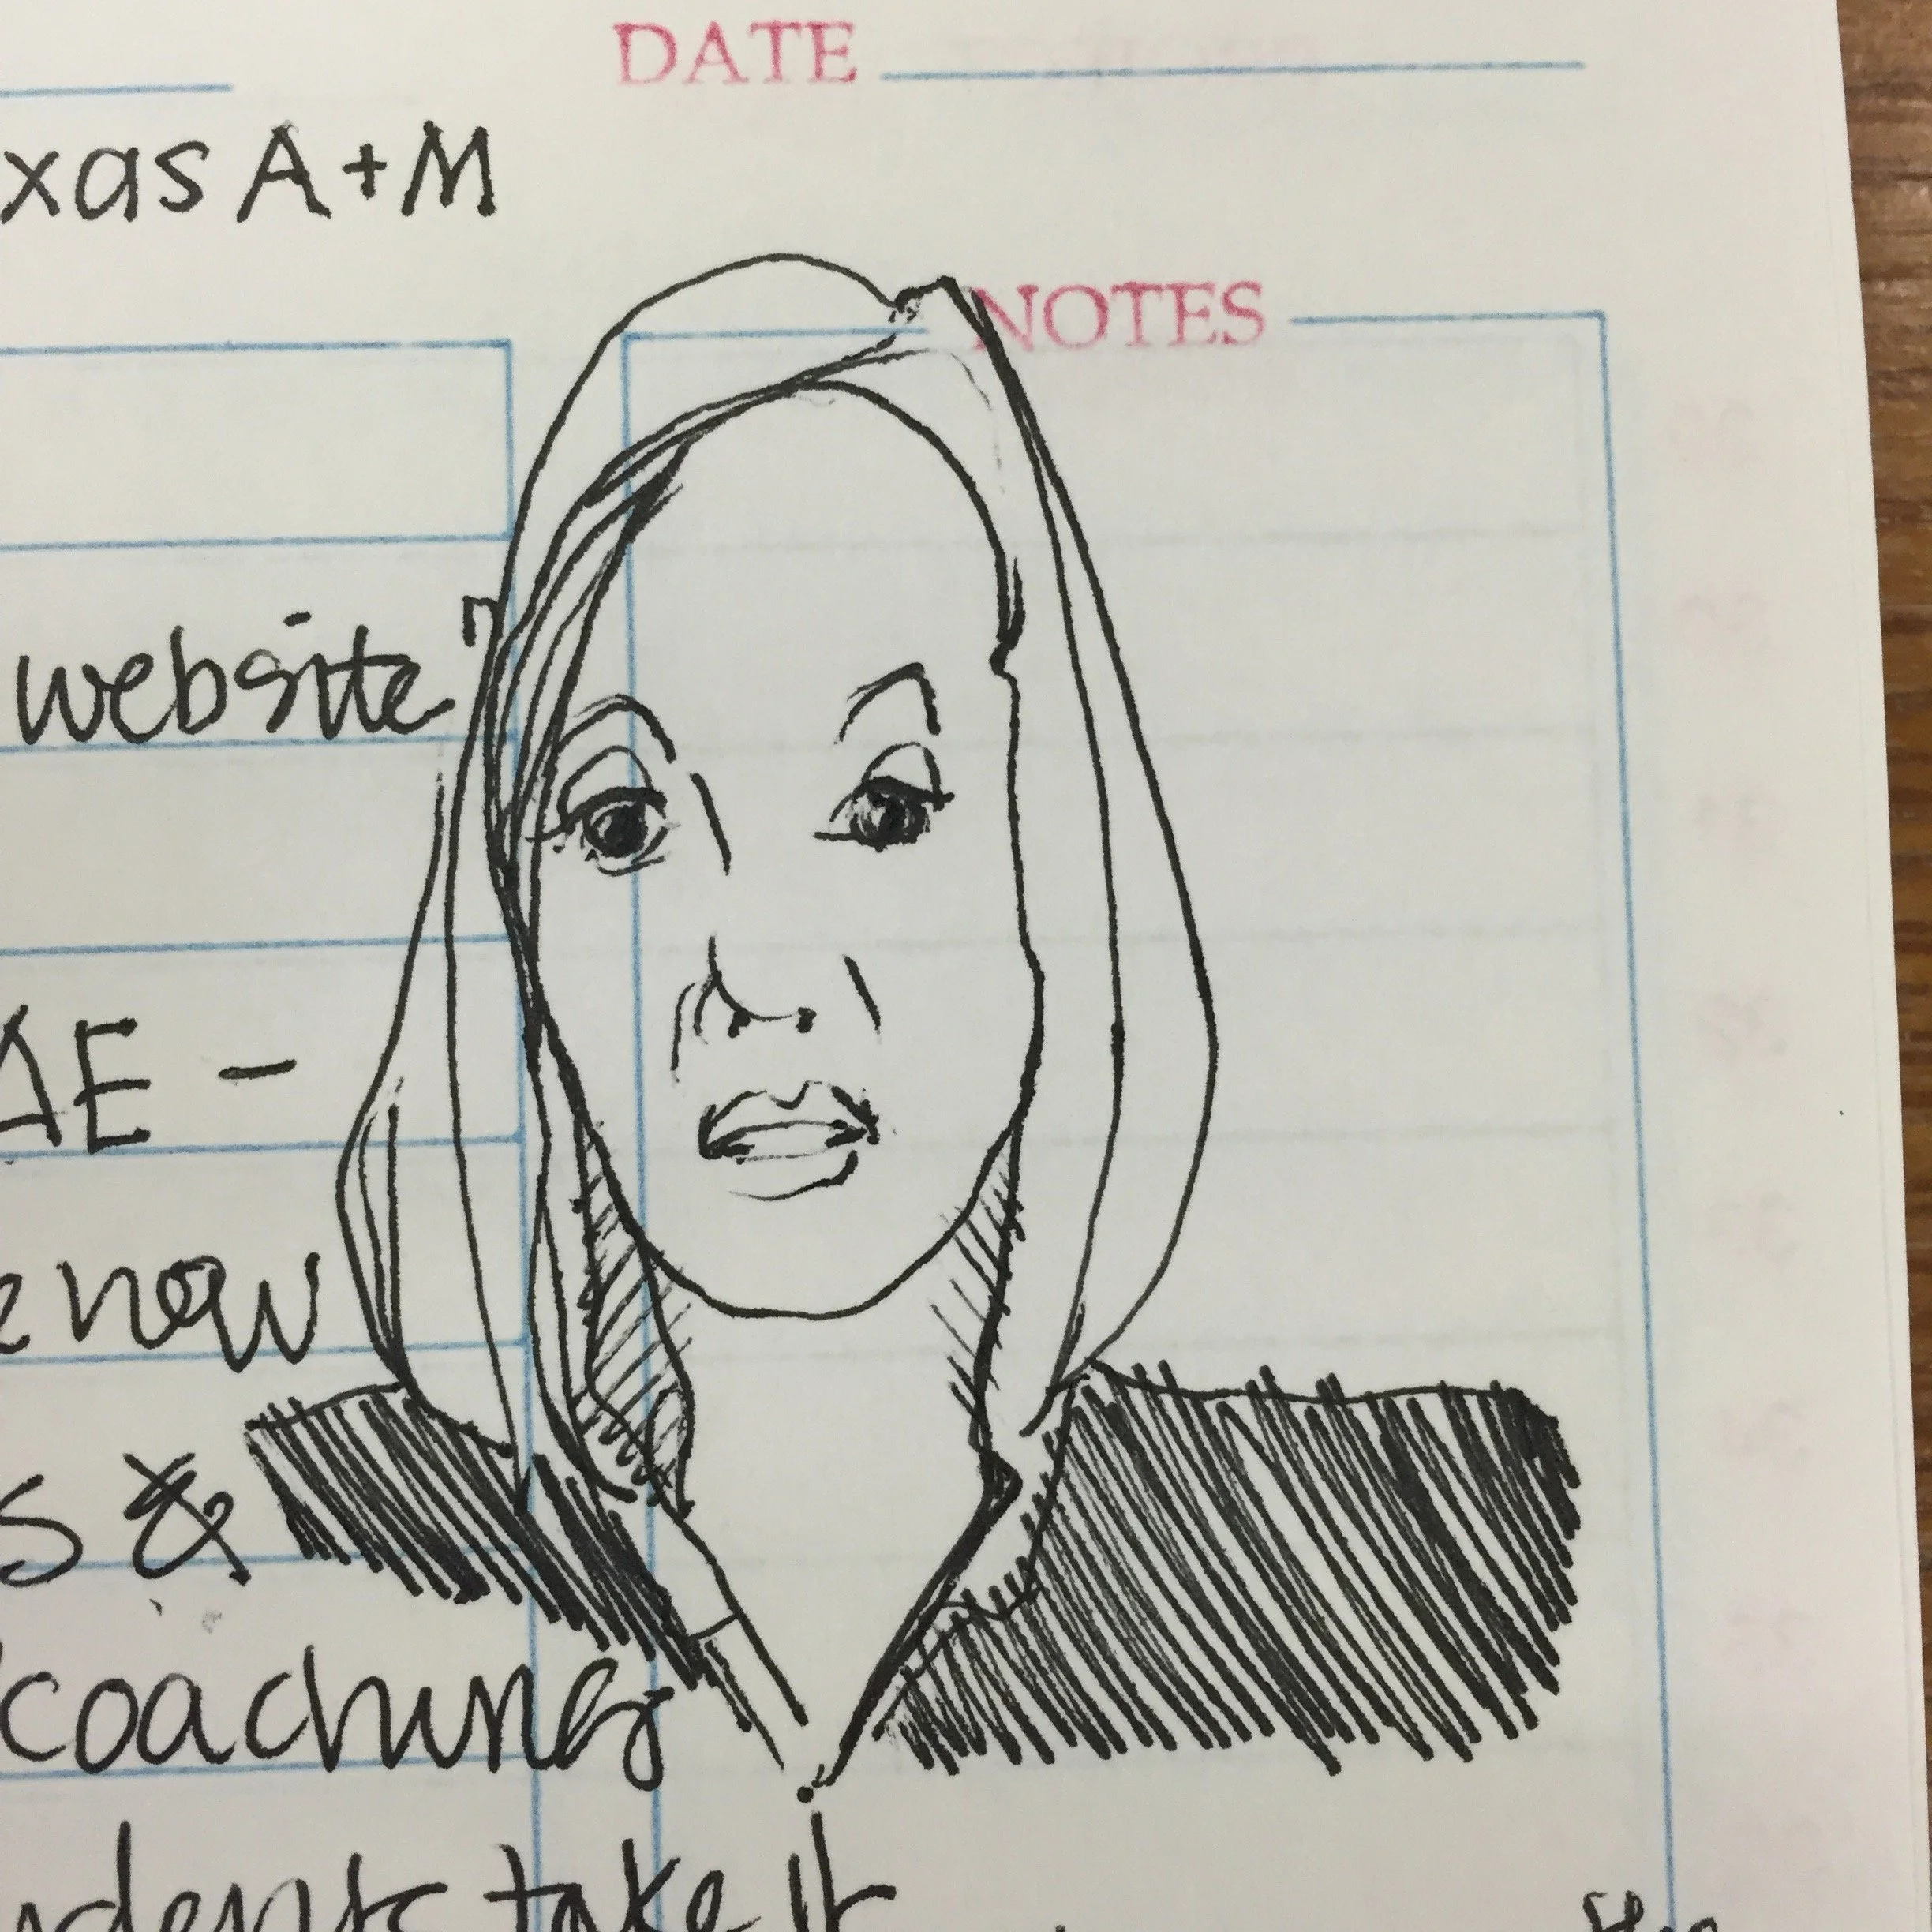 DATE
xas A+M
NOTES
website?
AE -
now
s &
coaching
udents take it